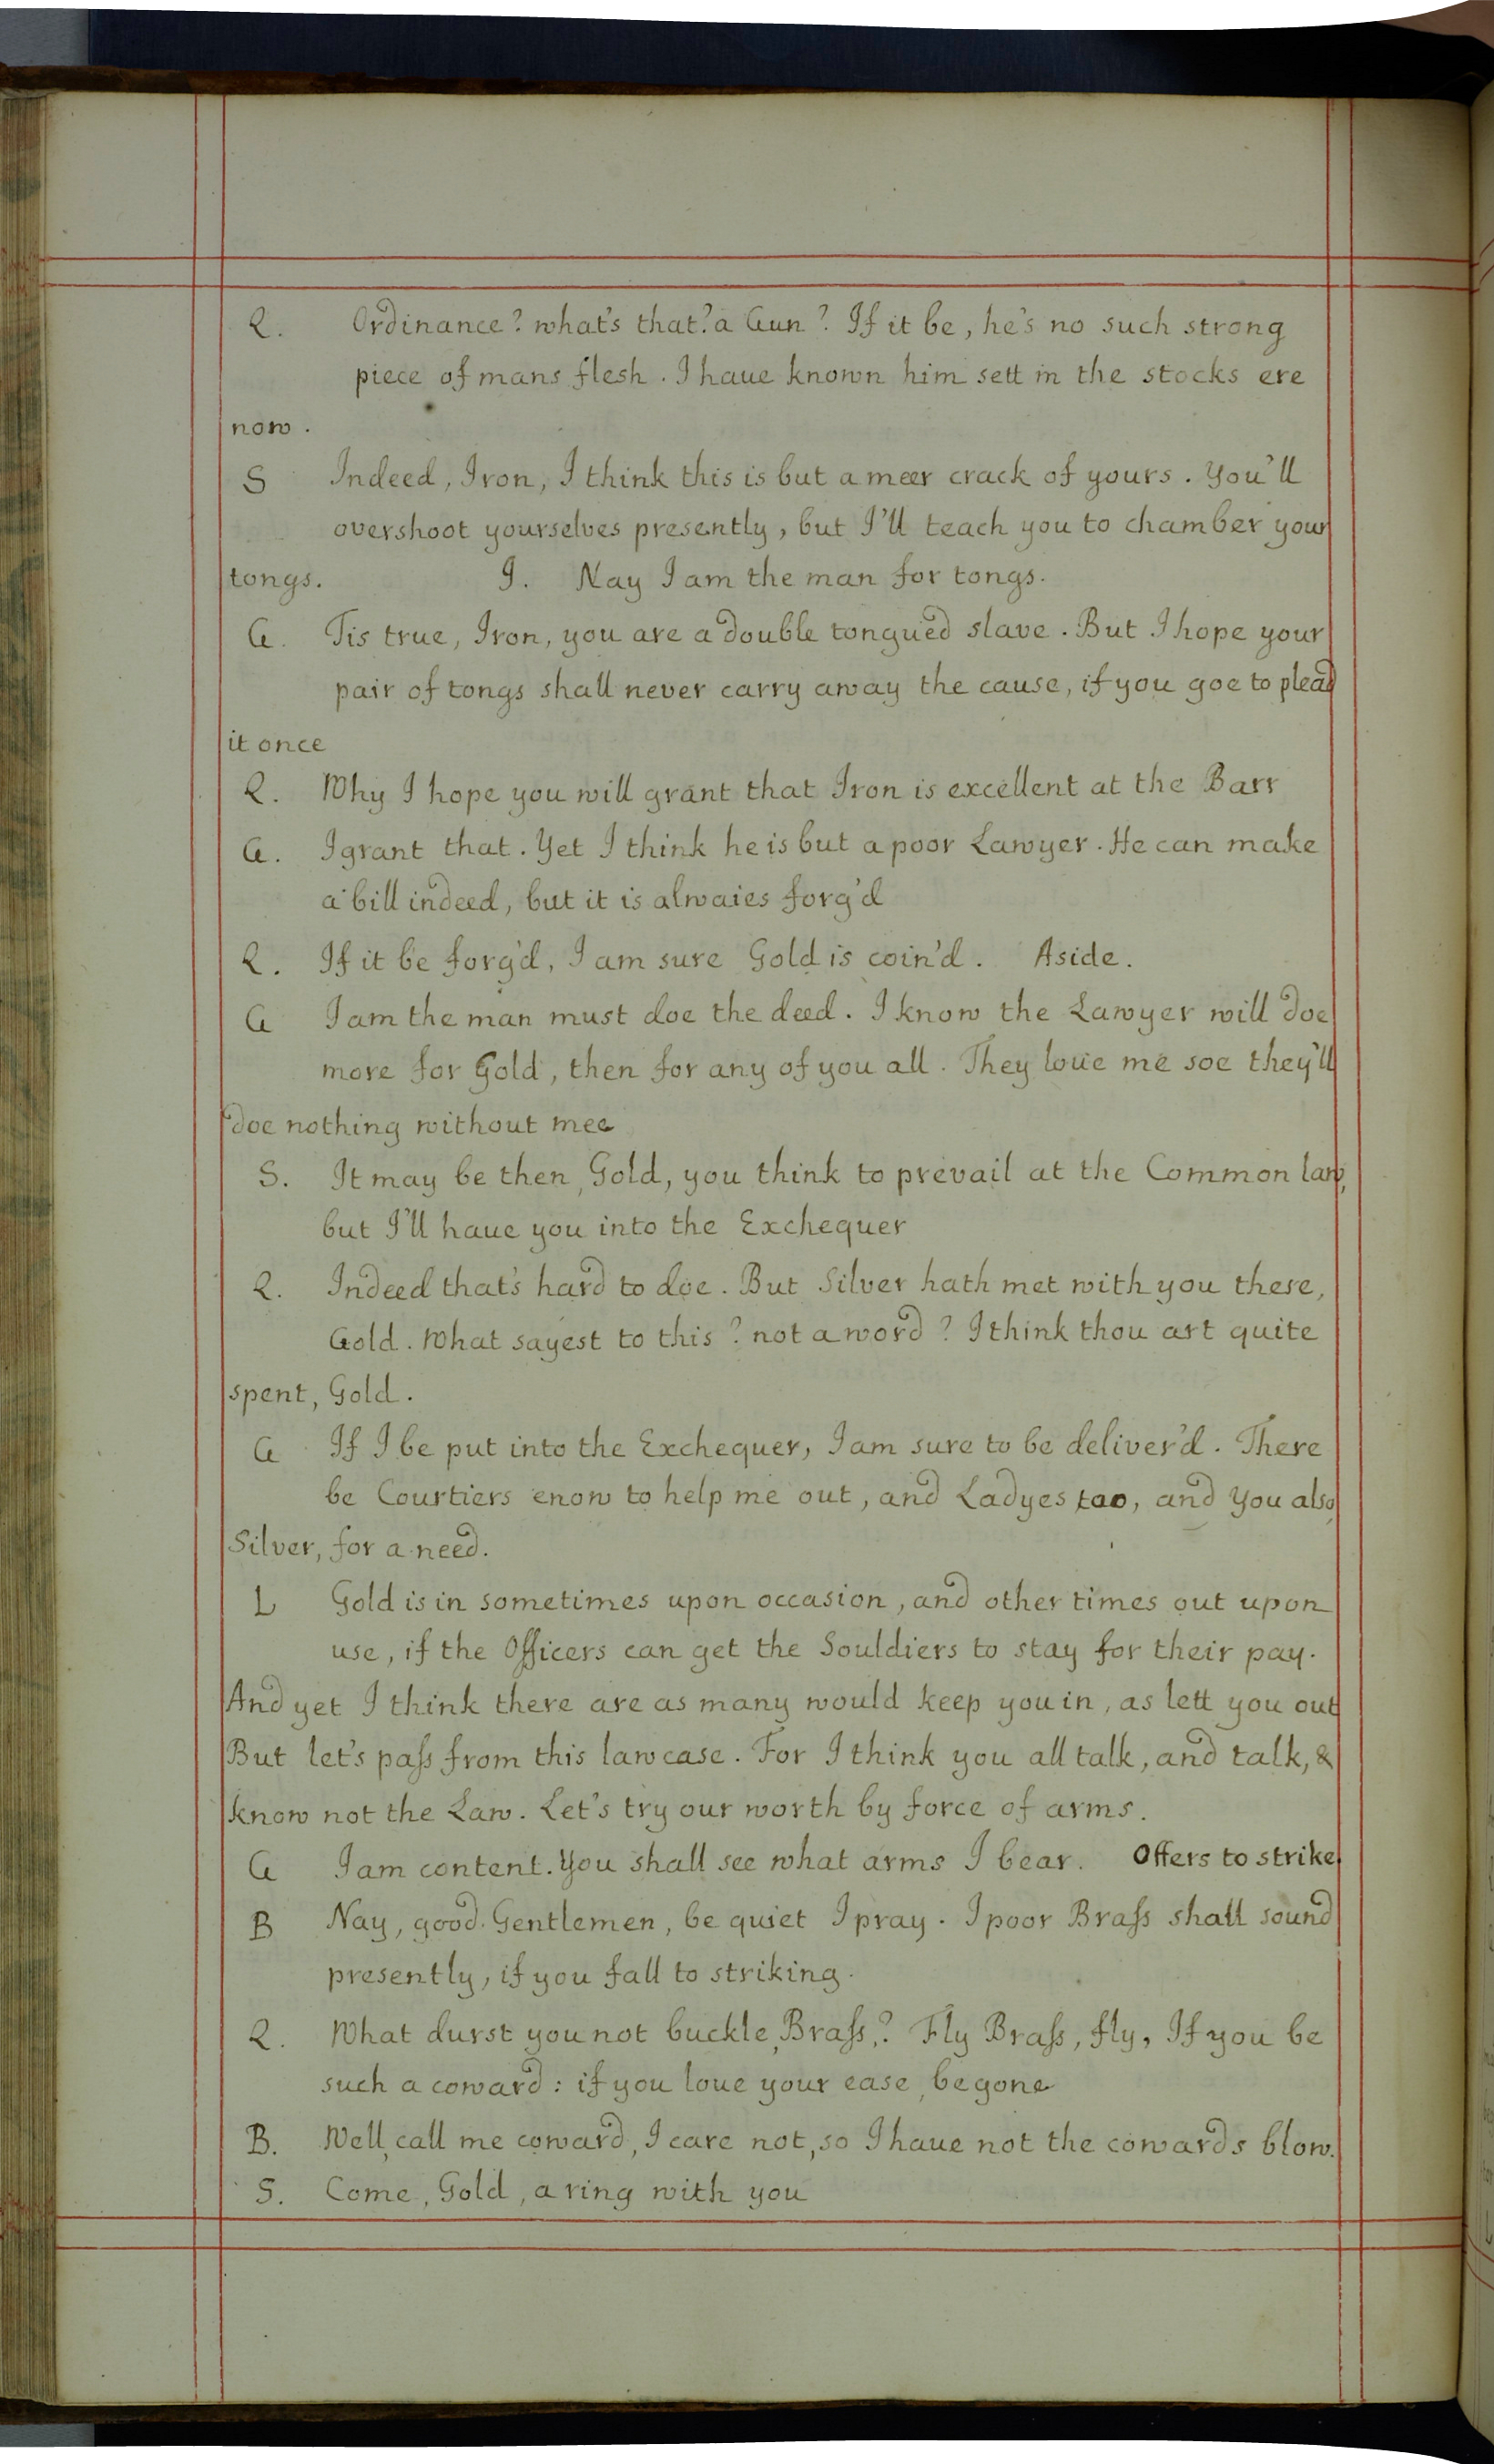 Q. Ordinance? what's that? a Gun? If it be, he's no such strong
piece of mans flesh. I haue known him sett in the stocks ere
now.
S Indeed, Iron, I think this is but a meer crack of yours. You'll
overshoot yourselves presently, but I'll teach you to chamber your
tongs. I. Nay I am the man for tongs.
G. Tis true, Iron, you are a double tongued slave. But I hope your
pair of tongs shall never carry away the cause, if you goe to plead
it once
Q. Why I hope you will grant that Iron is excellent at the Barr
G. I grant that. Yet I think he is but a poor Lawyer. He can make
a bill indeed, but it is alwaies forg'd
Q. If it be forg'd, I am sure Gold is coin'd. Aside.
G I am the man must doe the deed. I know the Lawyer will doe
more for Gold, then for any of you all. They loue me soe they'll
doe nothing without mee
S. It may be then, Gold, you think to prevail at the Common law,
but I'll haue you into the Exchequer
Q. Indeed that's hard to doe. But Silver hath met with you there,
Gold. What sayest to this? not a word? I think thou art quite
spent, Gold.
G If I be put into the Exchequer, I am sure to be deliver'd. There
be Courtiers enow to help me out, and Ladyes too, and you also,
Silver, for a need.
L Gold is in sometimes upon occasion, and other times out upon
use, if the Officers can get the Souldiers to stay for their pay.
And yet I think there are as many would keep you in, as lett you out
But let's paſs from this law case. For I think you all talk, and talk, &
know not the Law. Let's try our worth by force of arms.
G I am content. You shall see what arms I bear. Offers to strike.
B Nay, good Gentlemen, be quiet I pray. I poor Braſs shall sound
presently, if you fall to striking.
Q. What durst you not buckle, Braſs,? Fly Braſs, fly, If you be
such a coward: if you loue your ease, begone
B. Well, call me coward, I care not, so I haue not the cowards blow.
S. Come, Gold, a ring with you